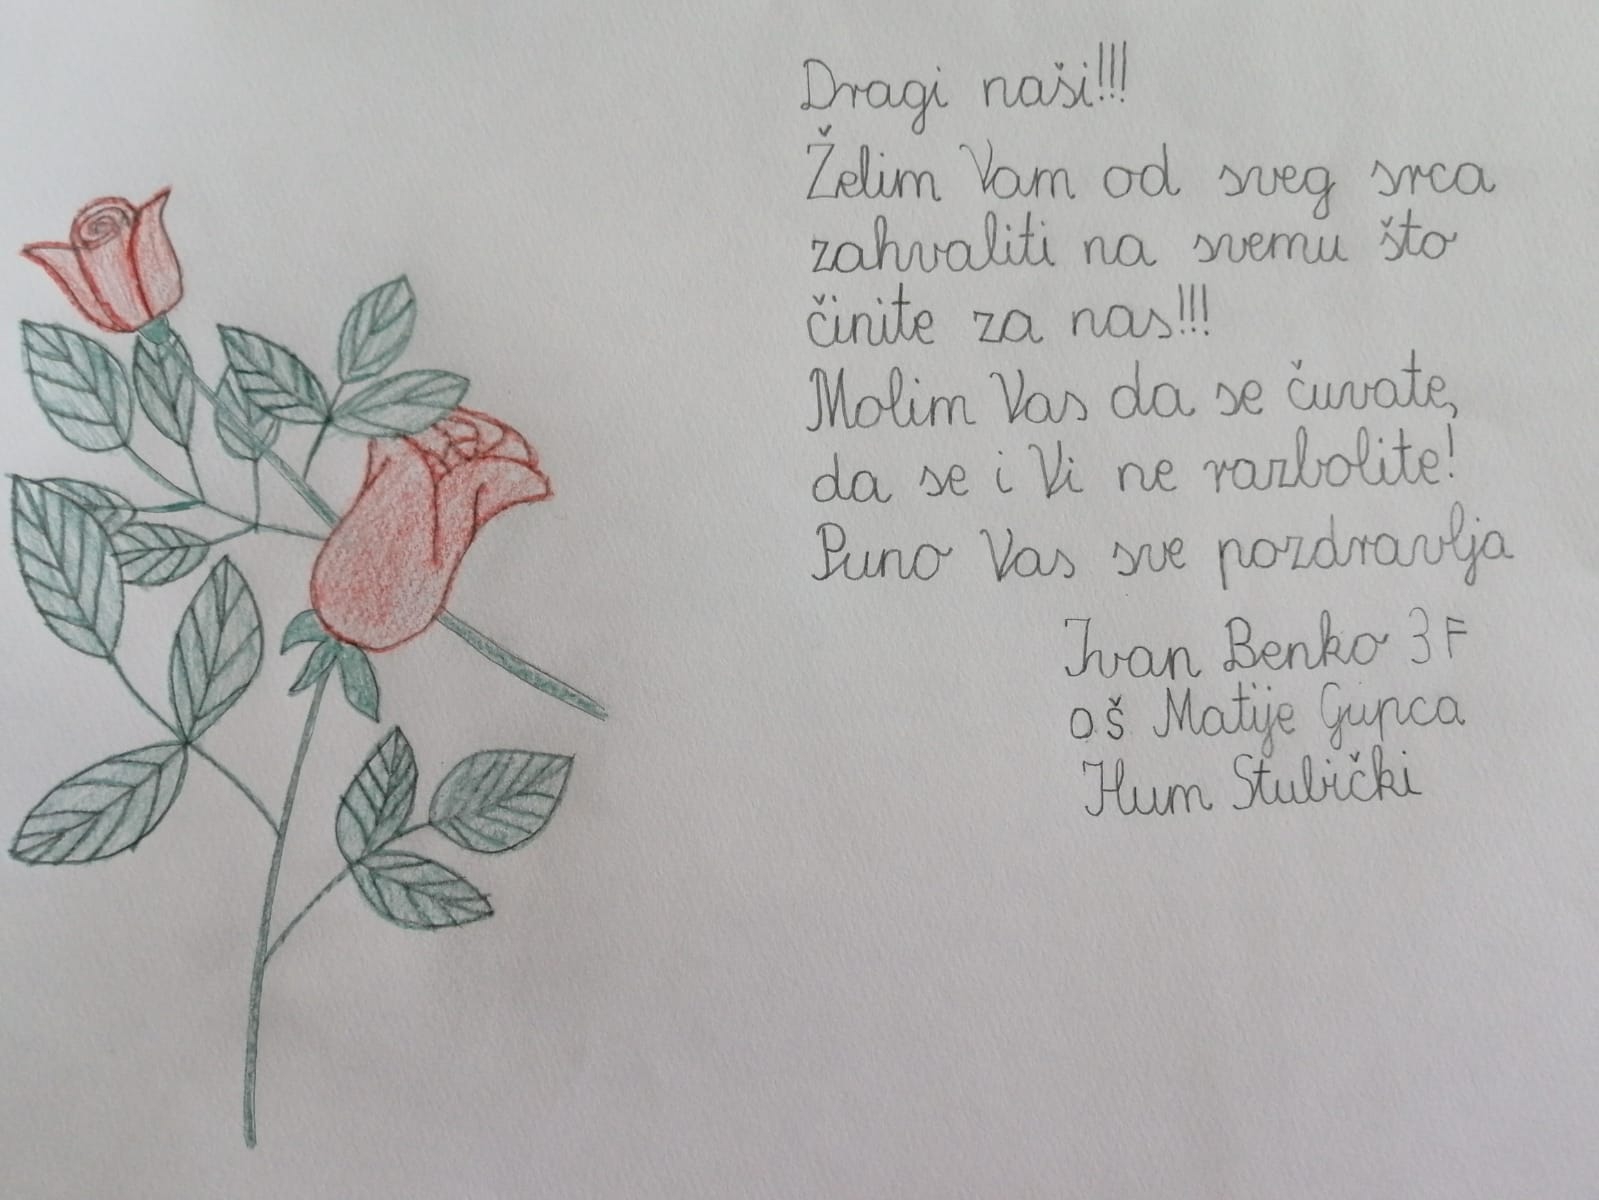 Dragi naši!!!
Želim Vam od sveg srca
zahvaliti na svemu što
činite za nas!!!
Molim Vas da se čuvate,
da se i Vi ne razbolite!
Puno Vas sve pozdravlja
Ivan Benko 3F
oš Matije Gupca
Hum Stubički